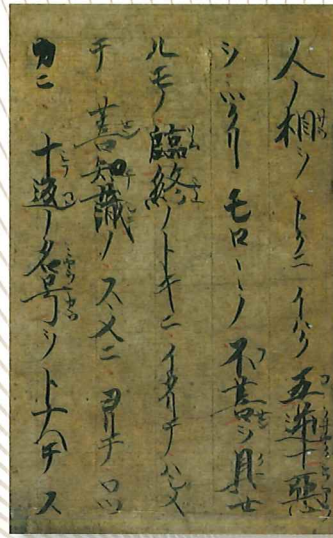 人ノ相ヲトクニイハク五逆十惡
ヲツクリモロ〳〵ノ不善ヲ具セ
ルモノ臨終ノトキニイタリテハシメ
テ善知識ノスヽメニヨリテ
十返ノ名号ヲトナヘテス